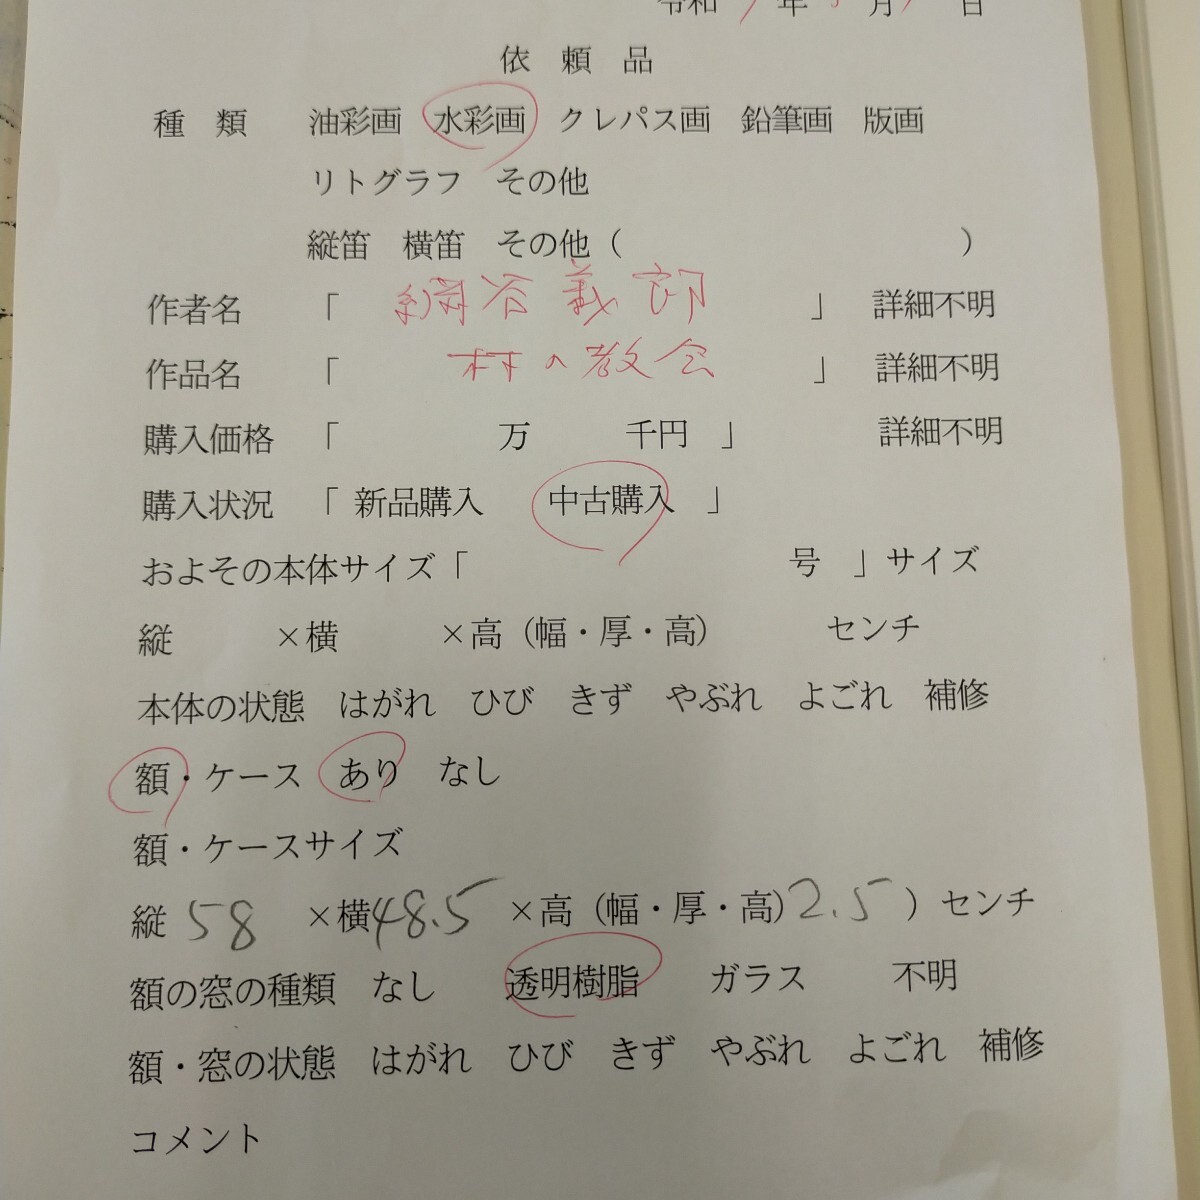 令和 年 月 日
依 頼 品
種 類 油彩画 水彩画 クレパス画 鉛筆画 版画
リトグラフ その他
縦笛 横笛 その他( )
作者名 「 網谷義郎 」 詳細不明
作品名 「 村の教会 」 詳細不明
購入価格 「 万 千円 」 詳細不明
購入状況 「 新品購入 中古購入 」
およその本体サイズ「 号 」サイズ
縦 ×横 ×高(幅・厚・高) センチ
本体の状態 はがれ ひび きず やぶれ よごれ 補修
額・ケース あり なし
額・ケースサイズ
縦 58 ×横48.5 ×高(幅・厚・高)2.5 )センチ
額の窓の種類 なし 透明樹脂 ガラス 不明
額・窓の状態 はがれ ひび きず やぶれ よごれ 補修
コメント